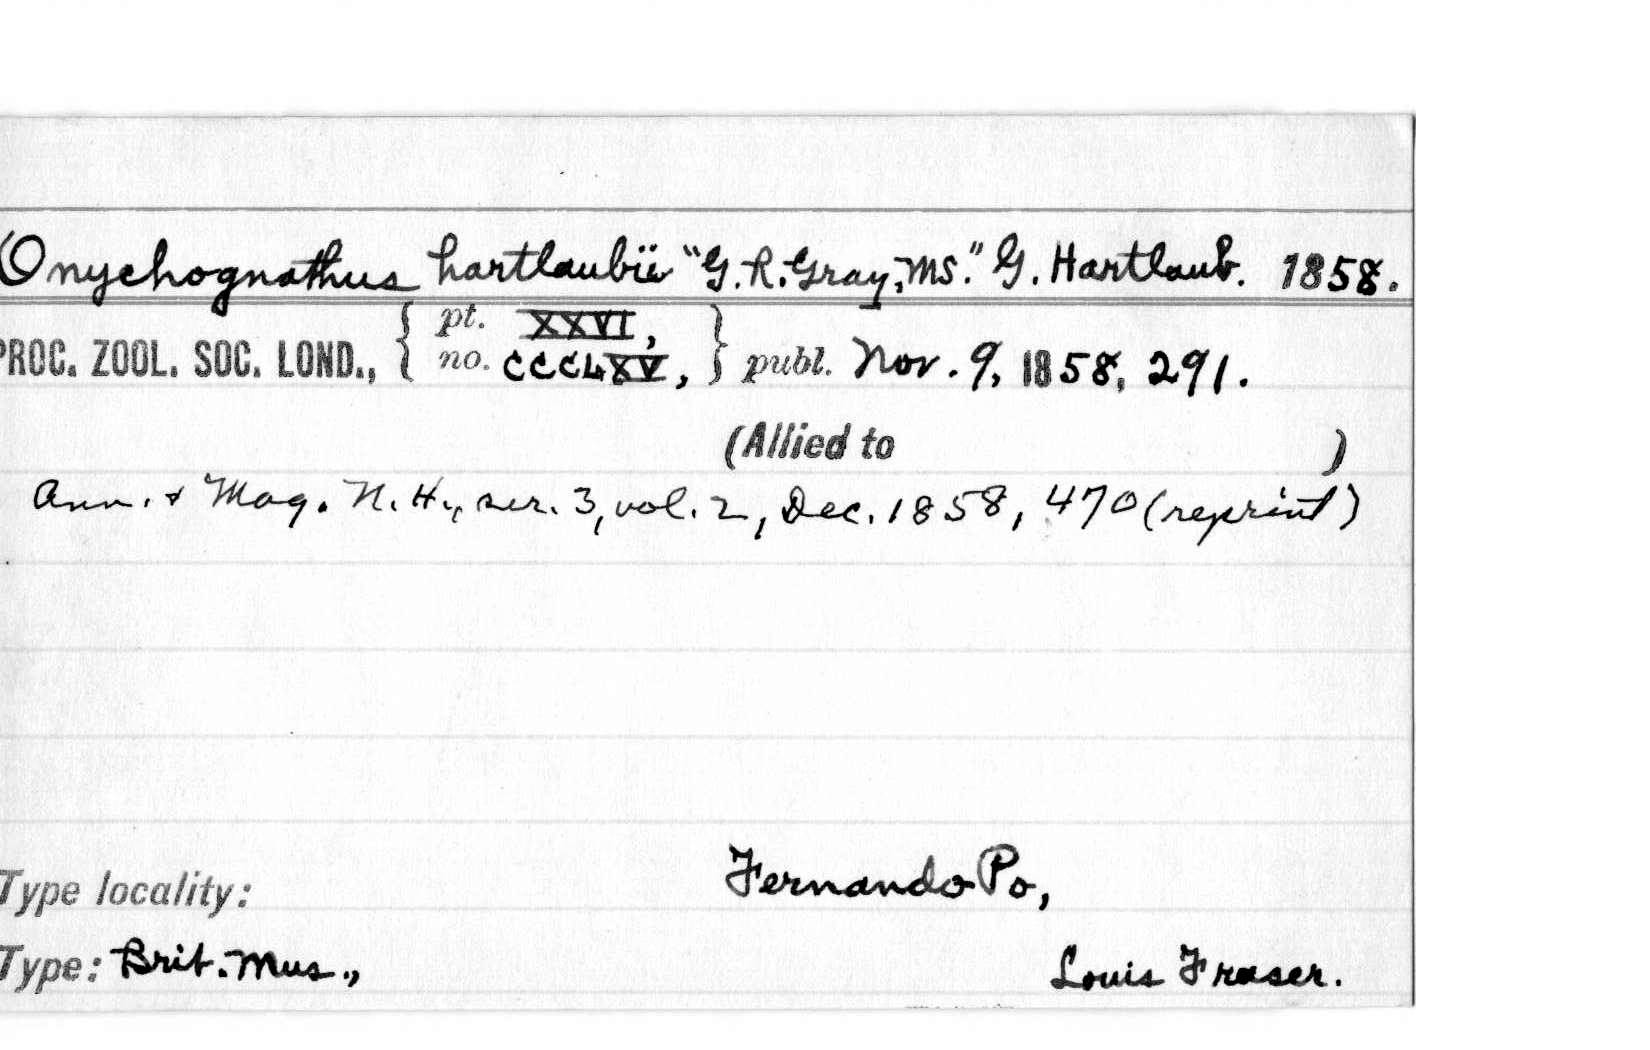 Onychognathus hartlaubii "G.R.Gray, MS." G. Hartlaub. 1858.
{ pt. XXVI, }
PROC. ZOOL. SOC. LOND., { no. CCCLXV, } publ. Nov. 9, 1858, 291.
(Allied to )
Ann. & Mag. N.H., ser. 3, vol. 2, Dec. 1858, 470 (reprint)
Type locality: Fernando Po,
Type: Brit. Mus., Louis Fraser.